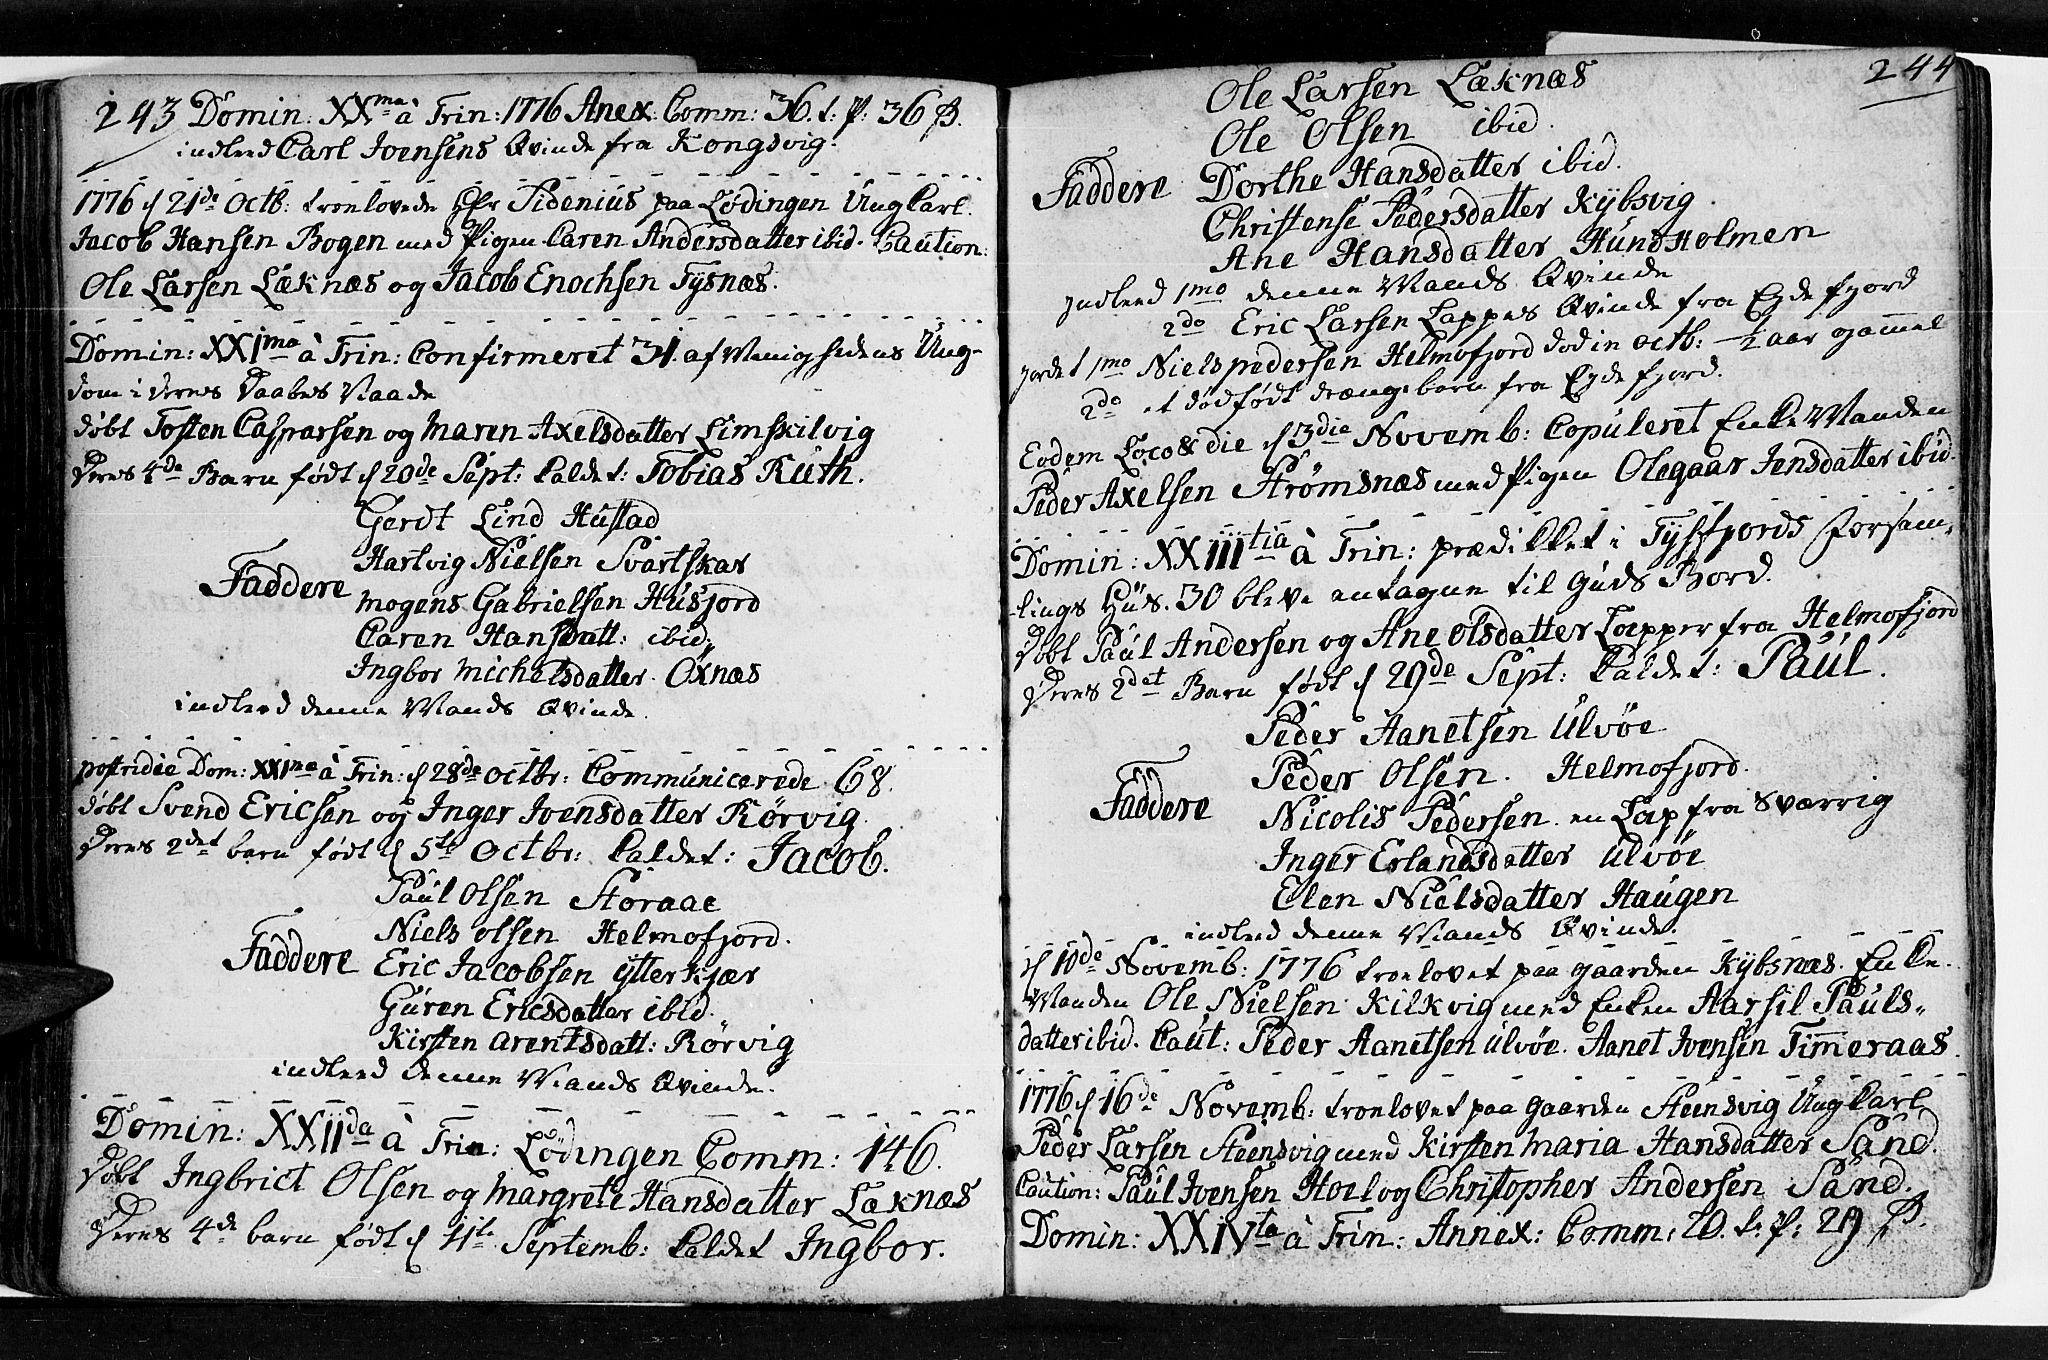 243 Domin: XXma à Trin: 1776 Anex: Comm: 36. t: p: 36 β.
indleed Carl Ivensens Qvinde fra Kongsvig.
1776 d 21de Octb: troelovede Hr Tidenius paa Lödingen Ung Carl
Jacob Hansen Bogen med Pigen Caren Andersdatter ibid. Caution:
Ole Larsen Læknæs og Jacob Enochsen Tysnæs.
Domin: XXIma à Trin: Confirmeret 31. af Menighedens Ung-
dom i deres Daabes Naade
döbt Tosten Casparsen og Maren Axelsdatter Limskilvig
Deres 4de Barn födt d 20de Sept: kaldet: Tobias Ruth.
Gerdt Lind Hustad
Hartvig Nielsen Svartskar
Faddere Mogens Gabrielsen Husjord
Caren Hansdatt: ibid„
Ingbor Michelsdatter Öxnæs
indleed denne Mands Qvinde.
postridie Dom: XXIma à Trin: d 28de octbr: Communicerede 68.
döbt Svend Ericsen og Inger Ivensdatter Rörvig
Deres 2det barn födt d 5te Octbr: kaldet: Jacob.
Paul Olsen Storaae
Niels Olsen Helmofjord.
Faddere Eric Jacobsen ytter Kjær
Guren Ericsdatter ibid.
Kirsten Arentsdatt: Rörvig
indleed denne Mands Qvinde.
Domin: XXIIda à Trin: Lödingen Comm: 146.
Döbt Ingbrict Olsen og Margrete Hansdatter Læknæs
Deres 4de barn födt d 11te Septemb: kaldet Ingbor.
244
Ole Larsen Læknæs
Ole Olsen ibid.
Faddere Dorthe Hansdatter ibid.
Christense Pedersdatter Kybsvig
Ane Hansdatter Hundholmen
Indleed 1mo denne Mands Qvinde
2do Eric Larsen Lappes Qvinde fra Eyde fjord
Jordet 1mo Niels pedersen Helmofjord död in octb: ½ aar gammel
2do et dödfödt drænge barn fra Eyde fjord.
Eodem Loco & die d 3die Novemb: Copuleret Enke Manden
Peder Axelsen Strömsnæs med Pigen Olegaar Jensdatter ibid.
Domin: XXIIItia à Trin: prædikket i Tysfjords Forsam-
lings Hus. 30 bleve antagne til Guds Bord.
Döbt Paul Andersen og Ane Olsdatter Lapper fra Helmofjord
Deres 2det Barn födt d 29de Sept: kaldet: Paul.
Peder Aanetsen Ulvöe
Peder Olsen. Helmofjord.
Faddere Nicolis Pedersen en Lap fra Sværrig
Inger Erlandsdatter Ulvöe
Elen Nielsdatter Haugen
indleed denne Mands Qvinde.
d 10de Novemb: 1776 troelovet paa gaarden Kybsnæs. Enke-
Manden Ole Nielsen Kilkvig med Enken Aarsil Pauls-
datter ibid. Caut: Peder Aanetsen Ulvöe. Aanet Ivensen Timeraas.
1776 d 16de Novemb: troelovet paa gaarden Steensvig Ung Carl
Peder Larsen Steensvig med Kirsten Maria Hansdatter Sand.
Caution: Paul Ivensen Hoel og Christopher Andersen Sand.
Domin: XXIVta à Trin: Annex: Comm: 20. t: p: 29 β.